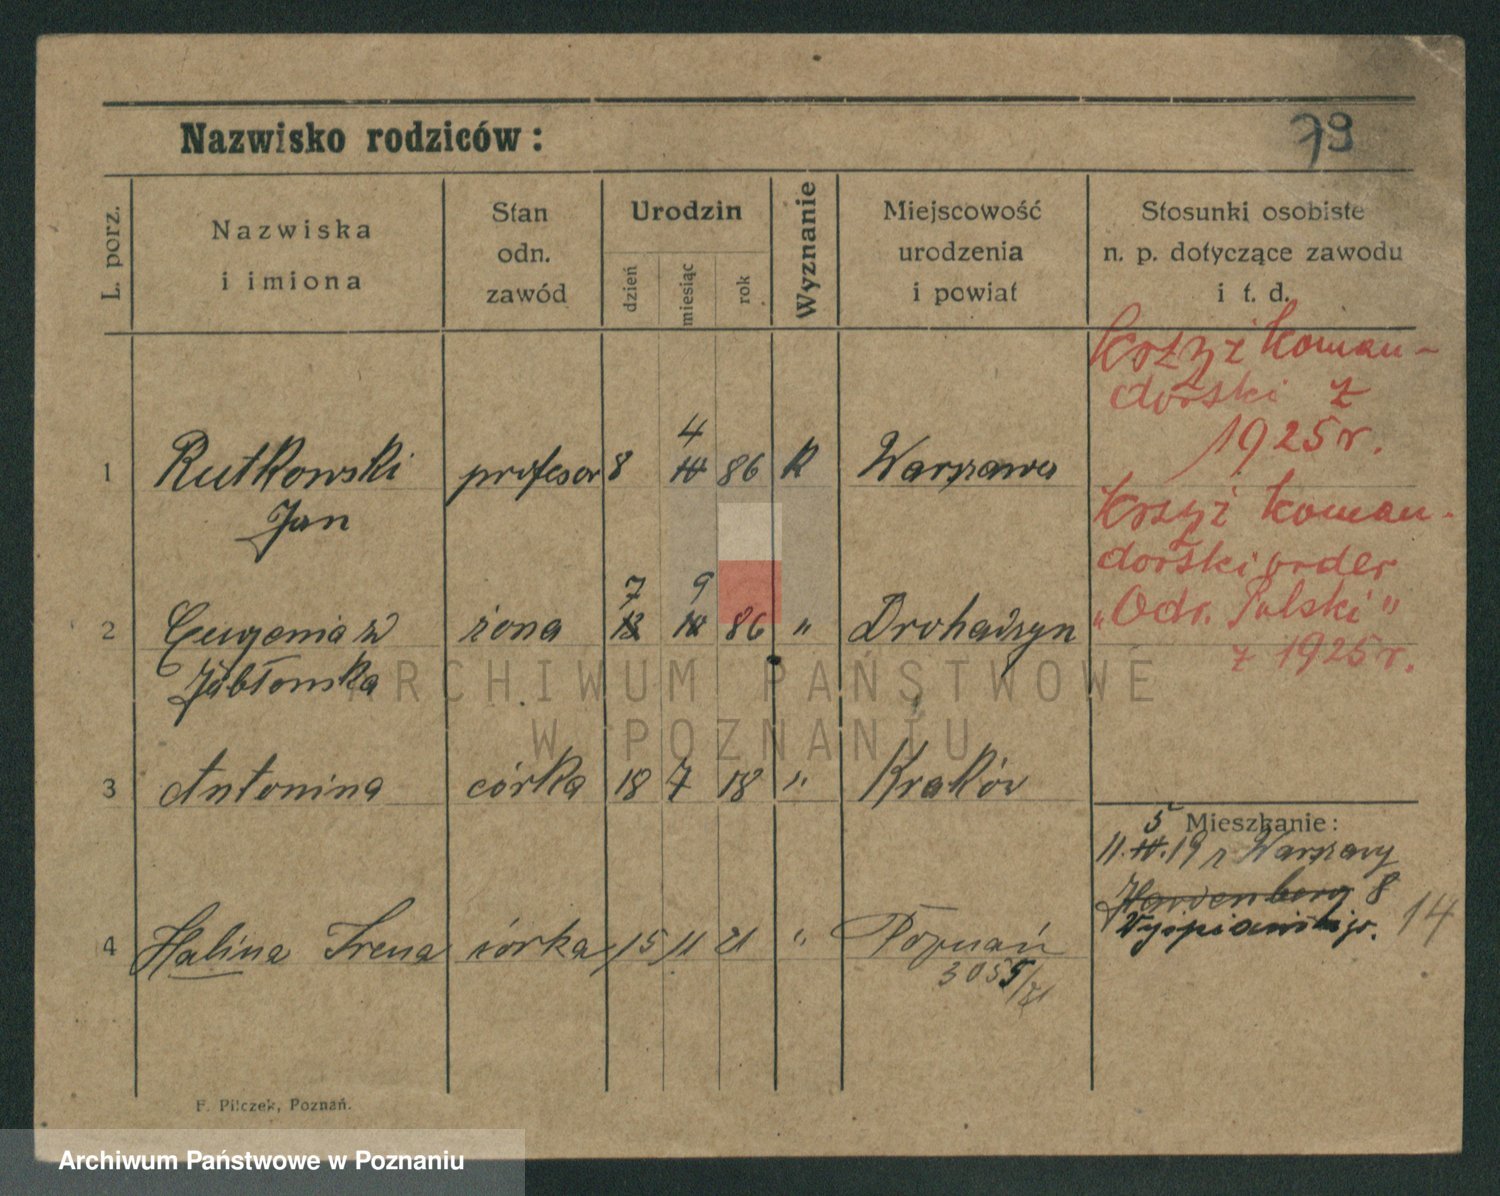 79
Nazwisko rodziców:
L. porz.
Nazwiska
i imiona
Stan
odn.
zawód
Urodzin
dzień
miesiąc
rok
Wyznanie
Miejscowość
urodzenia
i powiat
Stosunki osobiste
n. p. dotyczące zawodu
i t. d.
Krzyż koman-
dorski z
1925 r.
4
1 Rutkowski profesor 8 IV 86 k Warszawa
Jan
Krzyż koman-
dorski order
„Odr. Polski"
z 1925 r.
7 9
2 Eugenia z żona 86 " Drohiczyn
Jabłonska
ARCHIWUM PAŃSTWOWE
W POZNANIU
3 Antonina córka 18 7 18 " Kraków
Mieszkanie:
5
11. IV. 19 z Warszawy
Hardenberg 8
Wyspiańskiego. 14
4 Halina Irena córka 15 11 21 " Poznań
3055/21
F. Pilczek, Poznań.
Archiwum Państwowe w Poznaniu